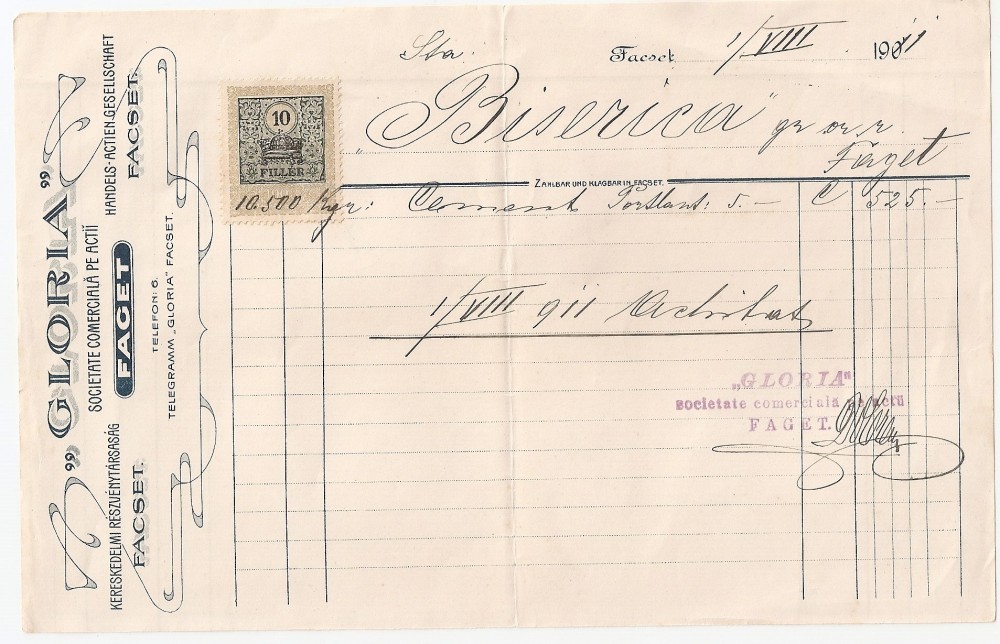 „GLORIA”
SOCIETATE COMERCIALĂ PE ACTII
FAGET
KERESKEDELMI RÉSZVÉNYTÁRSASÁG
FACSET.
HANDELS-ACTIEN GESELLSCHAFT
FACSET.
TELEFON: 6.
TELEGRAMM „GLORIA" FACSET.
Sta: Facset, 1/VIII 1911
10
FILLÉR
„Biserica" gr. or. r.
Faget
ZAHLBAR UND KLAGBAR IN FACSET.
10.500 Kgr: Cement Portlant: 5.— C 525.—
1/VIII 911 Achitat
„GLORIA"
societate comercială pe actii
FAGET.